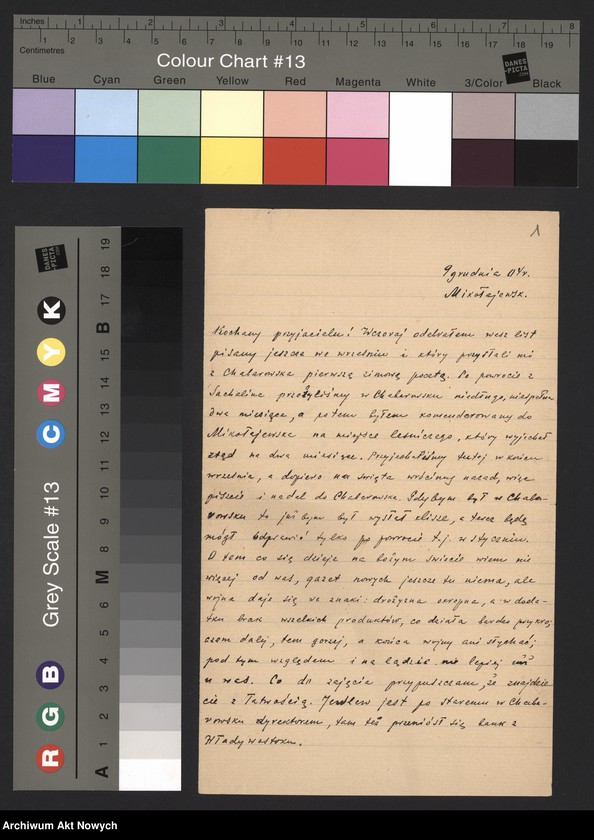 Inches 1 2 3 4 5 6 7 8
Centimetres 1 2 3 4 5 6 7 8 9 10 11 12 13 14 15 16 17 18 19
Colour Chart #13
DANES
-PICTA
.COM
Blue Cyan Green Yellow Red Magenta White 3/Color Black
R G B Grey Scale #13 C M Y K
DANES
-PICTA
.COM
A 1 2 3 4 5 6 M 8 9 10 11 12 13 14 15 B 17 18 19
1
9 grudnia 04r.
Mikołajewsk.
Kochany przyjacielu! Wczoraj odebrałem wasz list
pisany jeszcze we wrześniu i który przysłali mi
z Chabarowska pierwszą zimową pocztą. Po powrocie z
Sachalina przeżyliśmy w Chabarowsku niedługo, niespełna
dwa miesiące, a potem byłem komenderowany do
Mikołajewska na miejsce leśniczego, który wyjechał
stąd na dwa miesiące. Przyjechaliśmy tutaj w końcu
września, a dopiero na święta wrócimy nazad, więc
piszcie i nadal do Chabarowska. Gdybym był w Chaba-
rowsku to jużbym był wysłał klisze, a teraz będę
mógł odprawić tylko po powrocie t.j. w styczniu.
O tem co się dzieje na bożym świecie wiem nie
więcej od was, gazet nowych jeszcze tu niema, ale
wojna daje się we znaki: drożyzna okropna, a w doda-
tku brak wszelkich produktów, co działa bardzo przykro;
czem dalej, tem gorzej, a końca wojny ani słychać;
pod tym względem i na lądzie nie lepiej niż
u was. Co do zajęcia przypuszczam, że znajdzie
cie z łatwością. jest po staremu w Chaba-
rowsku dyrektorem, tam też przeniósł się bank z
Władywostoku.
Archiwum Akt Nowych